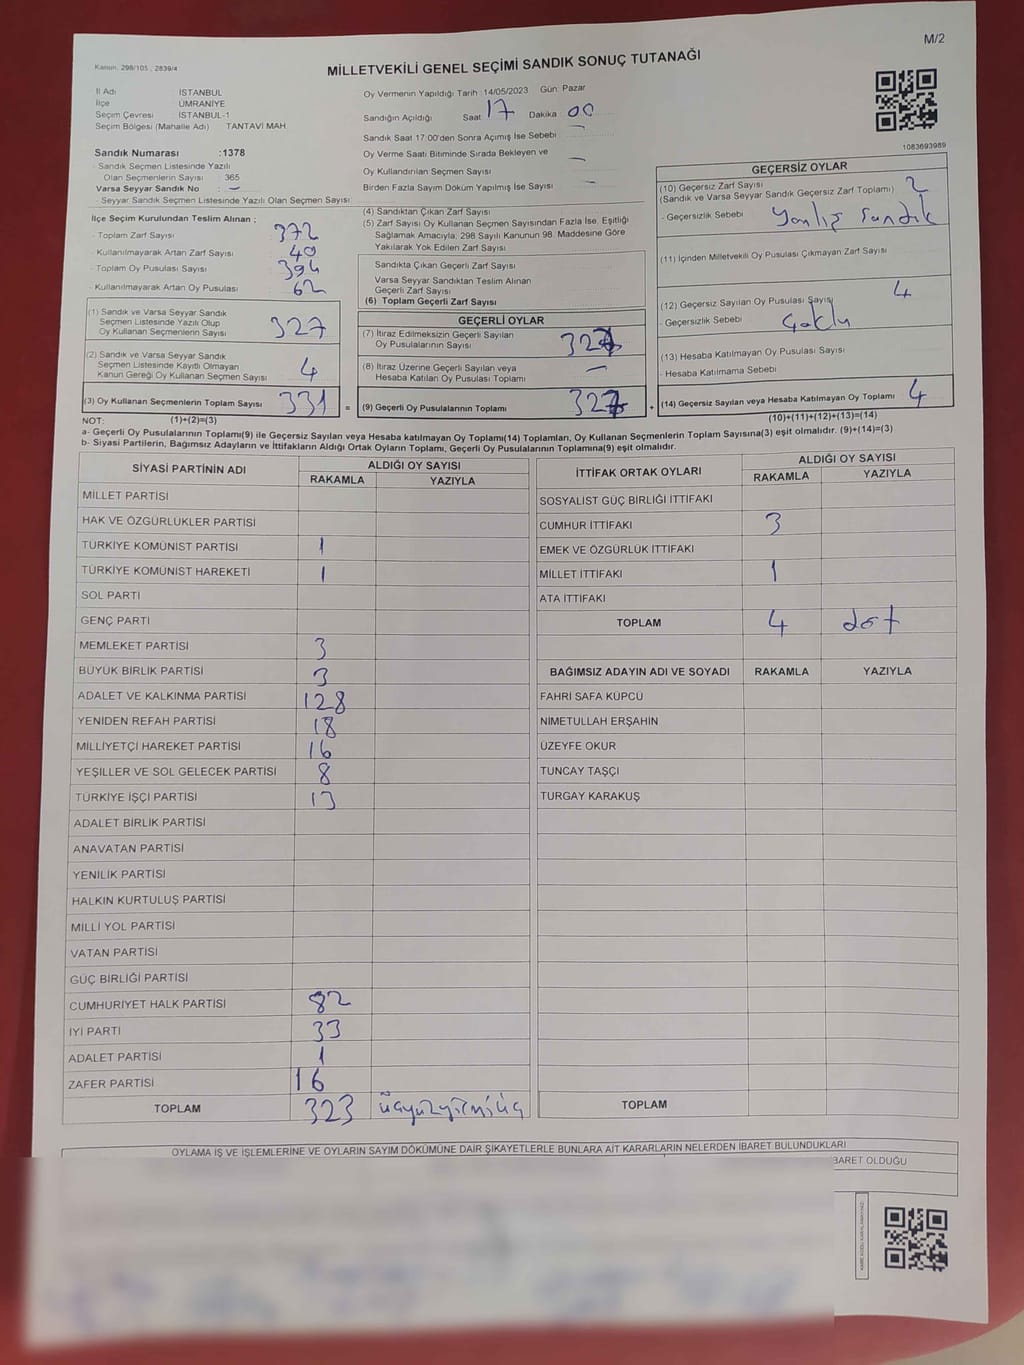 M/2
Kanun. 298/105 , 2839/4
MİLLETVEKİLİ GENEL SEÇİMİ SANDIK SONUÇ TUTANAĞI
İl Adı : İSTANBUL
İlçe : ÜMRANİYE
Seçim Çevresi : İSTANBUL-1
Seçim Bölgesi (Mahalle Adı) TANTAVİ MAH
Sandık Numarası :1378
- Sandık Seçmen Listesinde Yazılı
Olan Seçmenlerin Sayısı : 365
Varsa Seyyar Sandık No : –
- Seyyar Sandık Seçmen Listesinde Yazılı Olan Seçmen Sayısı
Oy Vermenin Yapıldığı Tarih :14/05/2023 Gün: Pazar
Sandığın Açıldığı Saat 17 Dakika 00
Sandık Saat 17:00'den Sonra Açımış İse Sebebi –
Oy Verme Saati Bitiminde Sırada Bekleyen ve
Oy Kullandırılan Seçmen Sayısı –
Birden Fazla Sayım Döküm Yapılmış İse Sayısı –
1083693989
İlçe Seçim Kurulundan Teslim Alınan ;
- Toplam Zarf Sayısı 372
- Kullanılmayarak Artan Zarf Sayısı 40
- Toplam Oy Pusulası Sayısı 394
- Kullanılmayarak Artan Oy Pusulası 62
(1) Sandık ve Varsa Seyyar Sandık
Seçmen Listesinde Yazılı Olup
Oy Kullanan Seçmenlerin Sayısı 327
(2) Sandık ve Varsa Seyyar Sandık
Seçmen Listesinde Kayıtlı Olmayan
Kanun Gereği Oy Kullanan Seçmen Sayısı 4
(3) Oy Kullanan Seçmenlerin Toplam Sayısı 331 =
(4) Sandıktan Çıkan Zarf Sayısı
(5) Zarf Sayısı Oy Kullanan Seçmen Sayısından Fazla İse, Eşitliği
Sağlamak Amacıyla, 298 Sayılı Kanunun 98. Maddesine Göre
Yakılarak Yok Edilen Zarf Sayısı
Sandıkta Çıkan Geçerli Zarf Sayısı
Varsa Seyyar Sandıktan Teslim Alınan
Geçerli Zarf Sayısı
(6) Toplam Geçerli Zarf Sayısı
GEÇERLİ OYLAR
(7) İtiraz Edilmeksizin Geçerli Sayılan
Oy Pusulalarının Sayısı 327
(8) İtiraz Üzerine Geçerli Sayılan veya
Hesaba Katılan Oy Pusulası Toplamı –
(9) Geçerli Oy Pusulalarının Toplamı 327 +
GEÇERSİZ OYLAR
(10) Geçersiz Zarf Sayısı
(Sandık ve Varsa Seyyar Sandık Geçersiz Zarf Toplamı) 2
- Geçersizlik Sebebi Yanlış sandık
(11) İçinden Milletvekili Oy Pusulası Çıkmayan Zarf Sayısı
(12) Geçersiz Sayılan Oy Pusulası Sayısı 4
- Geçersizlik Sebebi
(13) Hesaba Katılmayan Oy Pusulası Sayısı
- Hesaba Katılmama Sebebi
(14) Geçersiz Sayılan veya Hesaba Katılmayan Oy Toplamı 4
NOT: (1)+(2)=(3) (10)+(11)+(12)+(13)=(14)
a- Geçerli Oy Pusulalarının Toplamı(9) ile Geçersiz Sayılan veya Hesaba katılmayan Oy Toplamı(14) Toplamları, Oy Kullanan Seçmenlerin Toplam Sayısına(3) eşit olmalıdır. (9)+(14)=(3)
b- Siyasi Partilerin, Bağımsız Adayların ve İttifakların Aldığı Ortak Oyların Toplamı, Geçerli Oy Pusulalarının Toplamına(9) eşit olmalıdır.
SİYASİ PARTİNİN ADI ALDIĞI OY SAYISI
RAKAMLA YAZIYLA
MİLLET PARTİSİ
HAK VE ÖZGÜRLÜKLER PARTİSİ
TÜRKİYE KOMÜNİST PARTİSİ 1
TÜRKİYE KOMÜNİST HAREKETİ 1
SOL PARTİ
GENÇ PARTİ
MEMLEKET PARTİSİ 3
BÜYÜK BİRLİK PARTİSİ 3
ADALET VE KALKINMA PARTİSİ 128
YENİDEN REFAH PARTİSİ 18
MİLLİYETÇİ HAREKET PARTİSİ 16
YEŞİLLER VE SOL GELECEK PARTİSİ 8
TÜRKİYE İŞÇİ PARTİSİ 13
ADALET BİRLİK PARTİSİ
ANAVATAN PARTİSİ
YENİLİK PARTİSİ
HALKIN KURTULUŞ PARTİSİ
MİLLİ YOL PARTİSİ
VATAN PARTİSİ
GÜÇ BİRLİĞİ PARTİSİ
CUMHURİYET HALK PARTİSİ 82
İYİ PARTİ 33
ADALET PARTİSİ 1
ZAFER PARTİSİ 16
TOPLAM 323 üçyüzyirmiüç
İTTİFAK ORTAK OYLARI ALDIĞI OY SAYISI
RAKAMLA YAZIYLA
SOSYALİST GÜÇ BİRLİĞİ İTTİFAKI
CUMHUR İTTİFAKI 3
EMEK VE ÖZGÜRLÜK İTTİFAKI
MİLLET İTTİFAKI 1
ATA İTTİFAKI
TOPLAM 4 dört
BAĞIMSIZ ADAYIN ADI VE SOYADI RAKAMLA YAZIYLA
FAHRİ SAFA KÜPCÜ
NİMETULLAH ERŞAHİN
ÜZEYFE OKUR
TUNCAY TAŞÇI
TURGAY KARAKUŞ
TOPLAM
OYLAMA İŞ VE İŞLEMLERİNE VE OYLARIN SAYIM DÖKÜMÜNE DAİR ŞİKAYETLERLE BUNLARA AİT KARARLARIN NELERDEN İBARET BULUNDUKLARI
BARET OLDUĞU